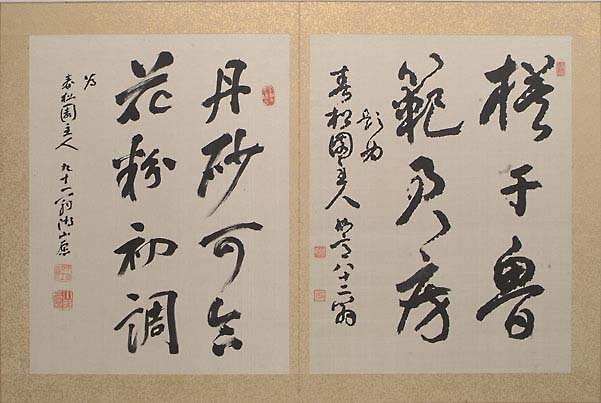 于魯
範乃房
題為
春松園主人 八十二翁
丹砂可含
花粉初調
為
春松園主人 九十一翁湖山